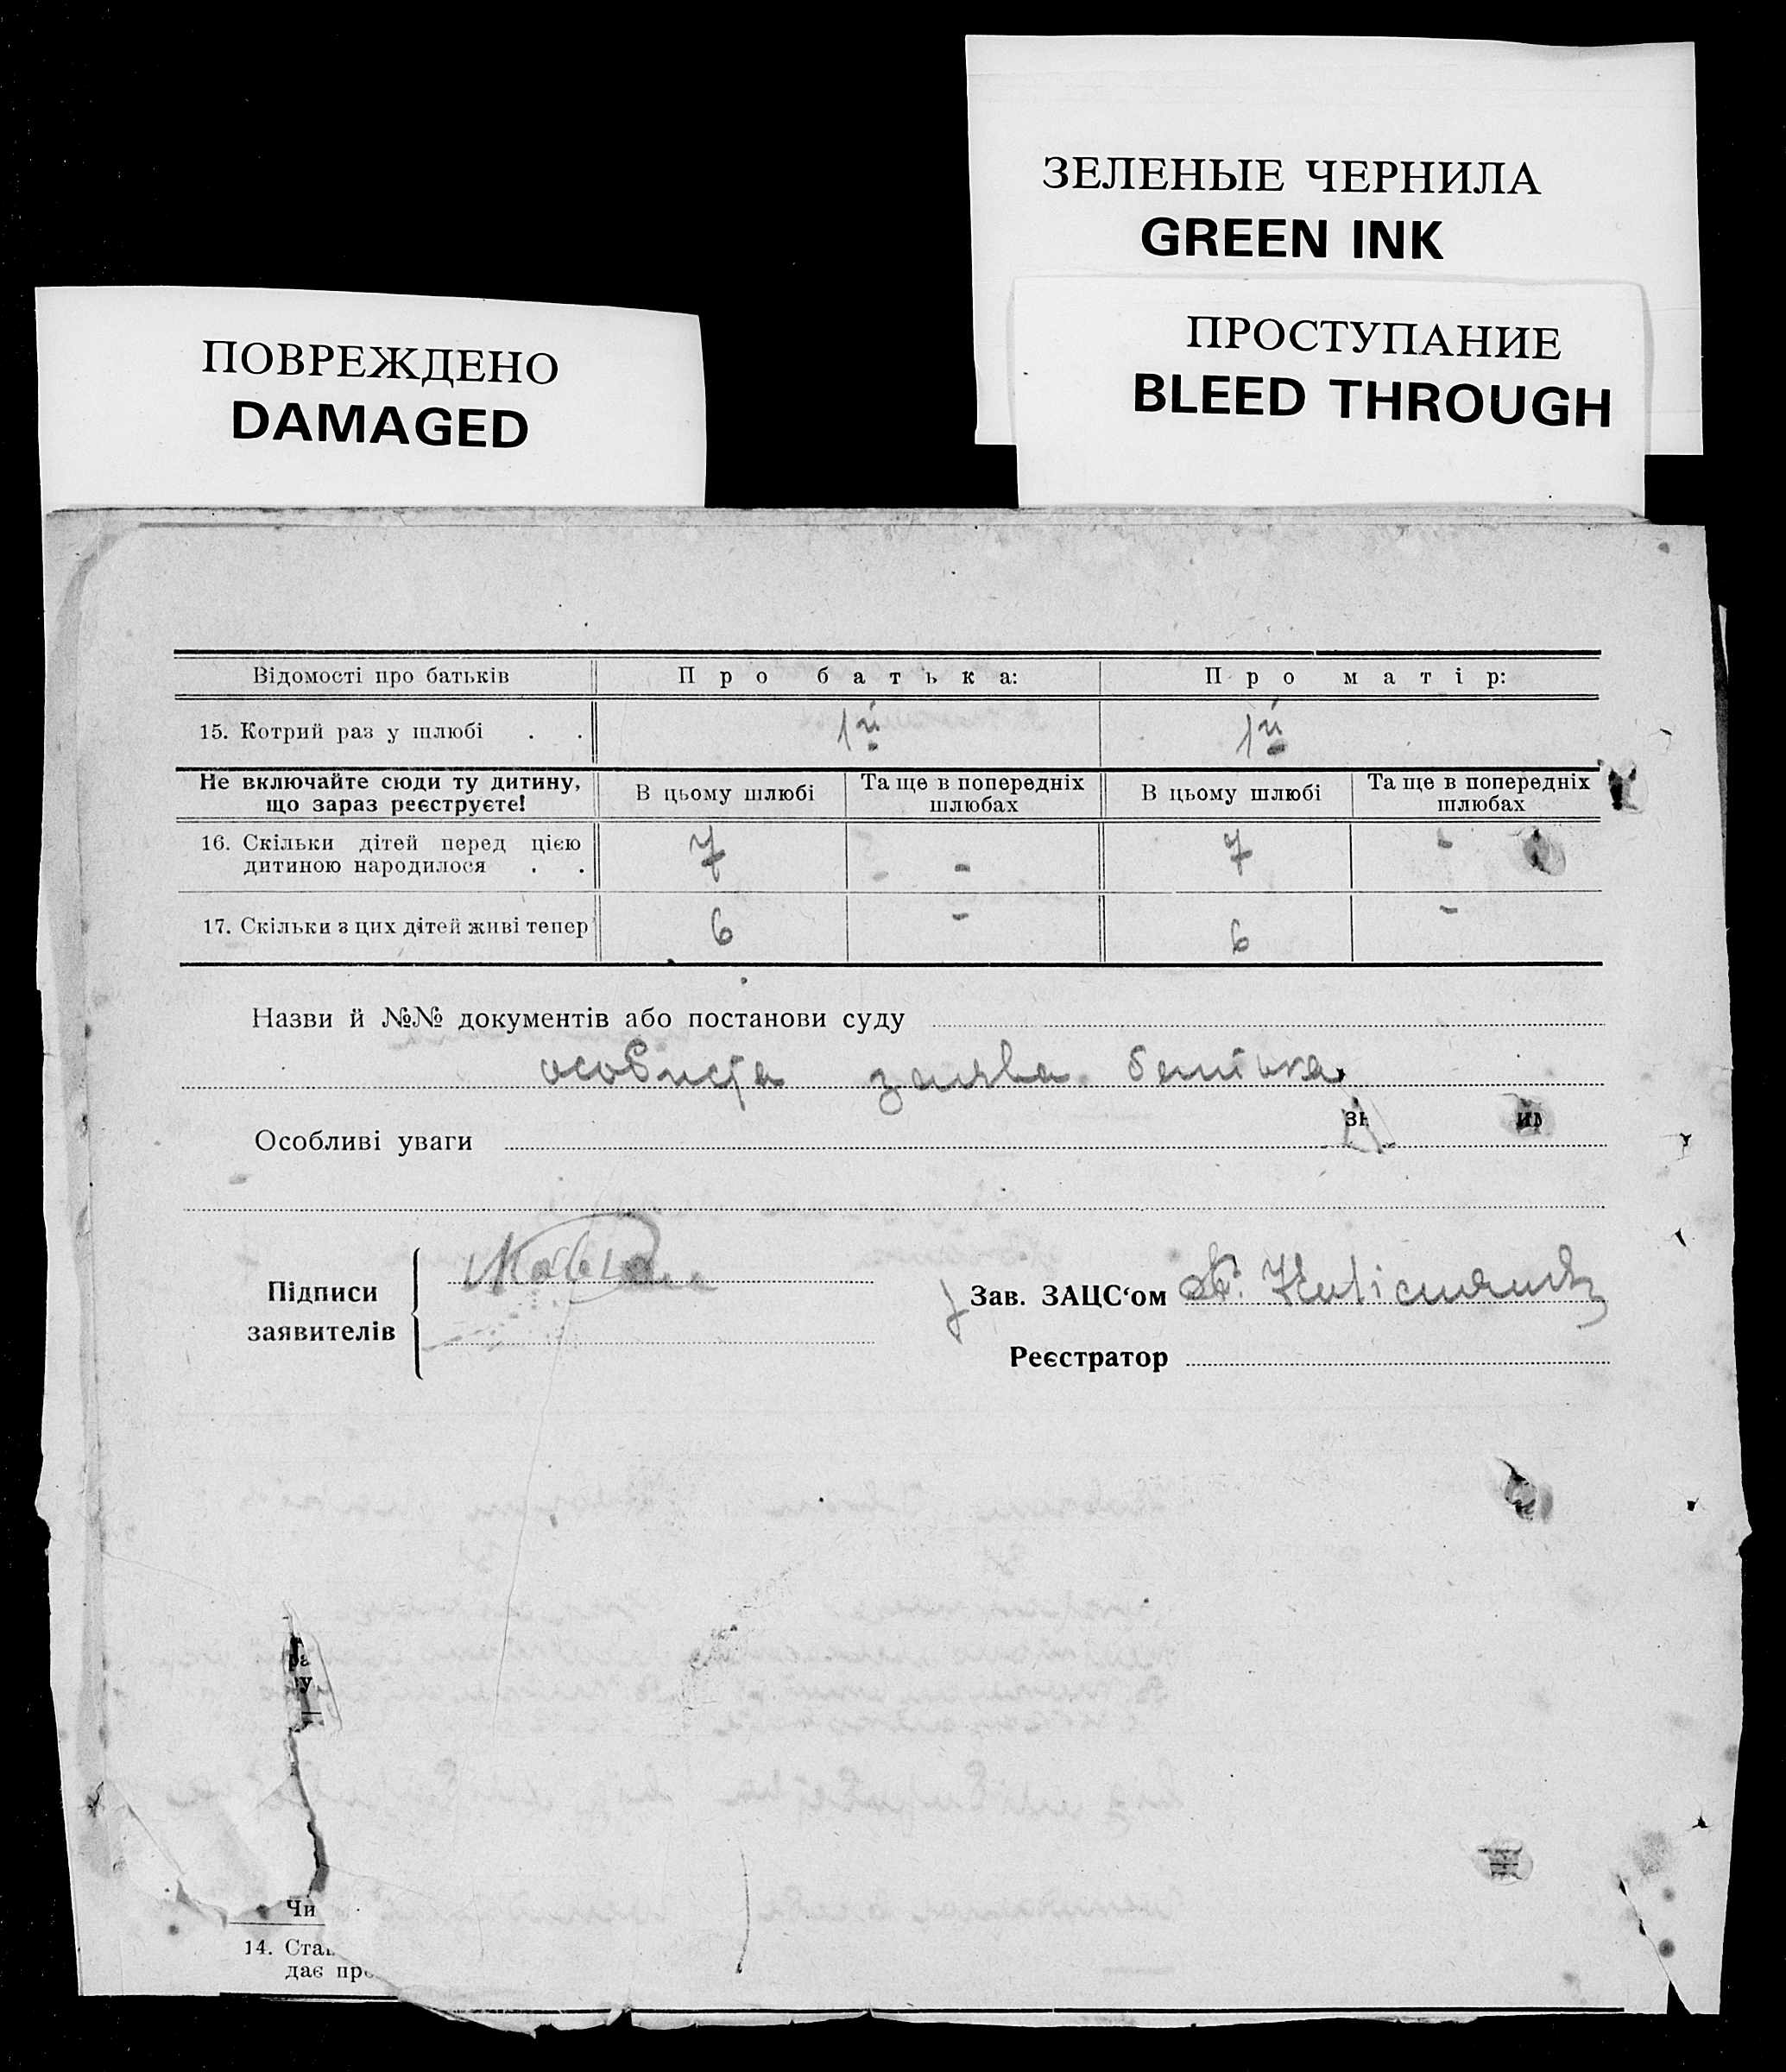 ЗЕЛЕНЫЕ ЧЕРНИЛА
GREEN INK
ПРОСТУПАНИЕ
BLEED THROUGH
ПОВРЕЖДЕНО
DAMAGED
Відомості про батьків Про батька: Про матір:
15. Котрий раз у шлюбі . . 1й 1й
Не включайте сюди ту дитину, що зараз реєструєте! В цьому шлюбі Та ще в попередніх шлюбах В цьому шлюбі Та ще в попередніх шлюбах
16. Скільки дітей перед цією
дитиною народилося . . 7 - 7 -
17. Скільки з цих дітей живі тепер 6 - 6 -
Назви й №№ документів або постанови суду
особиста заява батька
зн им
Особливі уваги
Підписи
заявителів
Зав. ЗАЦС‘ом
Реєстратор
ра
у
Чи
14. Ста
дає пр